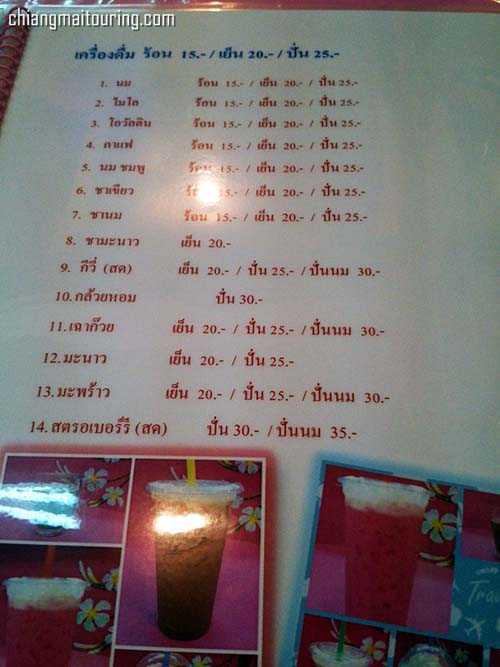 chiangmaitouring.com
เครื่องดื่ม ร้อน 15.- / เย็น 20.- / ปั่น 25.-
1. นม ร้อน 15.- / เย็น 20.- / ปั่น 25.-
2. ไมโล ร้อน 15.- / เย็น 20.- / ปั่น 25.-
3. โอวัลติน ร้อน 15.- / เย็น 20.- / ปั่น 25.-
4. กาแฟ ร้อน 15.- / เย็น 20.- / ปั่น 25.-
5. นม ชมพู ร้อน 15.- / เย็น 20.- / ปั่น 25.-
6. ชาเขียว ร้อน 15.- / เย็น 20.- / ปั่น 25.-
7. ชานม ร้อน 15.- / เย็น 20.- / ปั่น 25.-
8. ชามะนาว เย็น 20.-
9. กีวี่ (สด) เย็น 20.- / ปั่น 25.- / ปั่นนม 30.-
10. กล้วยหอม ปั่น 30.-
11. เฉาก๊วย เย็น 20.- / ปั่น 25.- / ปั่นนม 30.-
12. มะนาว เย็น 20.- / ปั่น 25.-
13. มะพร้าว เย็น 20.- / ปั่น 25.- / ปั่นนม 30.-
14. สตรอเบอร์รี (สด) ปั่น 30.- / ปั่นนม 35.-